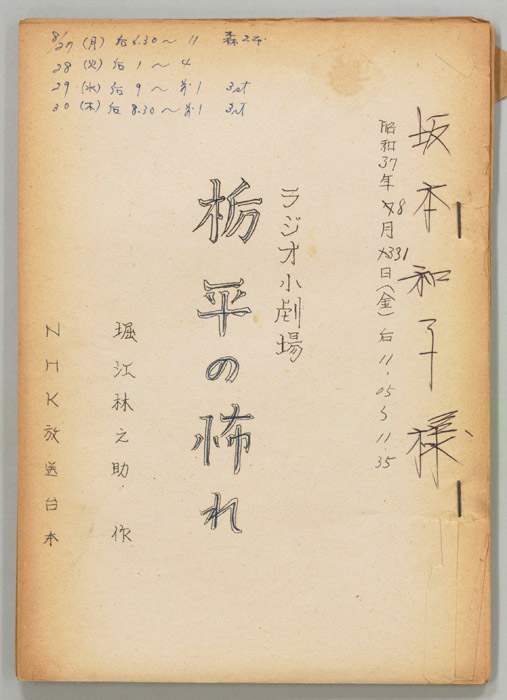 坂本和子様
昭和37年 8月 31日(金) 后11.05〜11.35
ラジオ小劇場
栃平の怖れ
堀江林之助 作
NHK放送台本
8/27 (月) 后6.30〜11
28 (火) 后1〜4
29 (水) 后9〜前1 3st
30 (木) 后8.30〜前1 3st